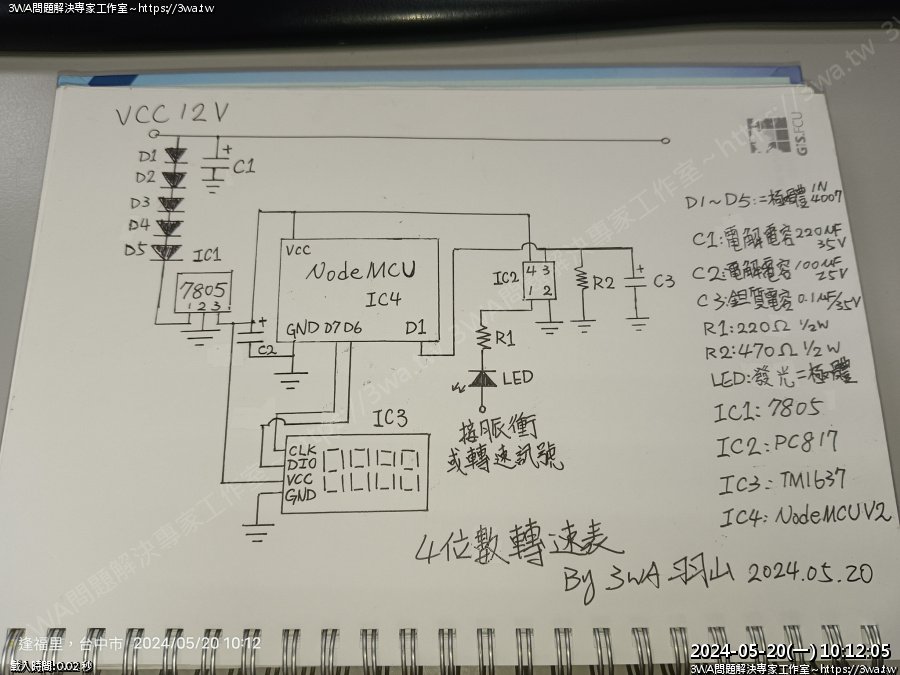 3WA問題解決專家工作室~https://3wa.tw
VCC 12V
GIS.FCU
D1
D2
D3
D4
D5
+
C1
IC1
7805
1 2 3
+
C2
VCC
NodeMCU
IC4
GND D7 D6 D1
IC2
4 3
1 2
R1
LED
R2
+
C3
接脈衝
或轉速訊號
IC3
CLK
DIO
VCC
GND
D1~D5:二極體 1N4007
C1:電解電容 220uF 35V
C2:電解電容 100uF 25V
C3:鉭質電容 0.1uF/35V
R1:220Ω 1/2W
R2:470Ω 1/2W
LED:發光二極體
IC1:7805
IC2:PC817
IC3:TM1637
IC4:NodeMCU V2
4位數轉速表
By 3WA 羽山 2024.05.20
逢福里,台中市 2024/05/20 10:12
載入時間:0.02 秒
2024-05-20(一) 10:12:05
3WA問題解決專家工作室~https://3wa.tw